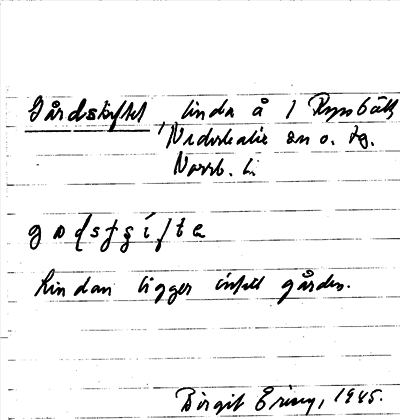 Gårdskiftet, linda å 1 Rynbäck
Nederkalix sn o. tg.
Norrb. L.
Lindan ligger intill gården.
Birgit Ering, 1945.